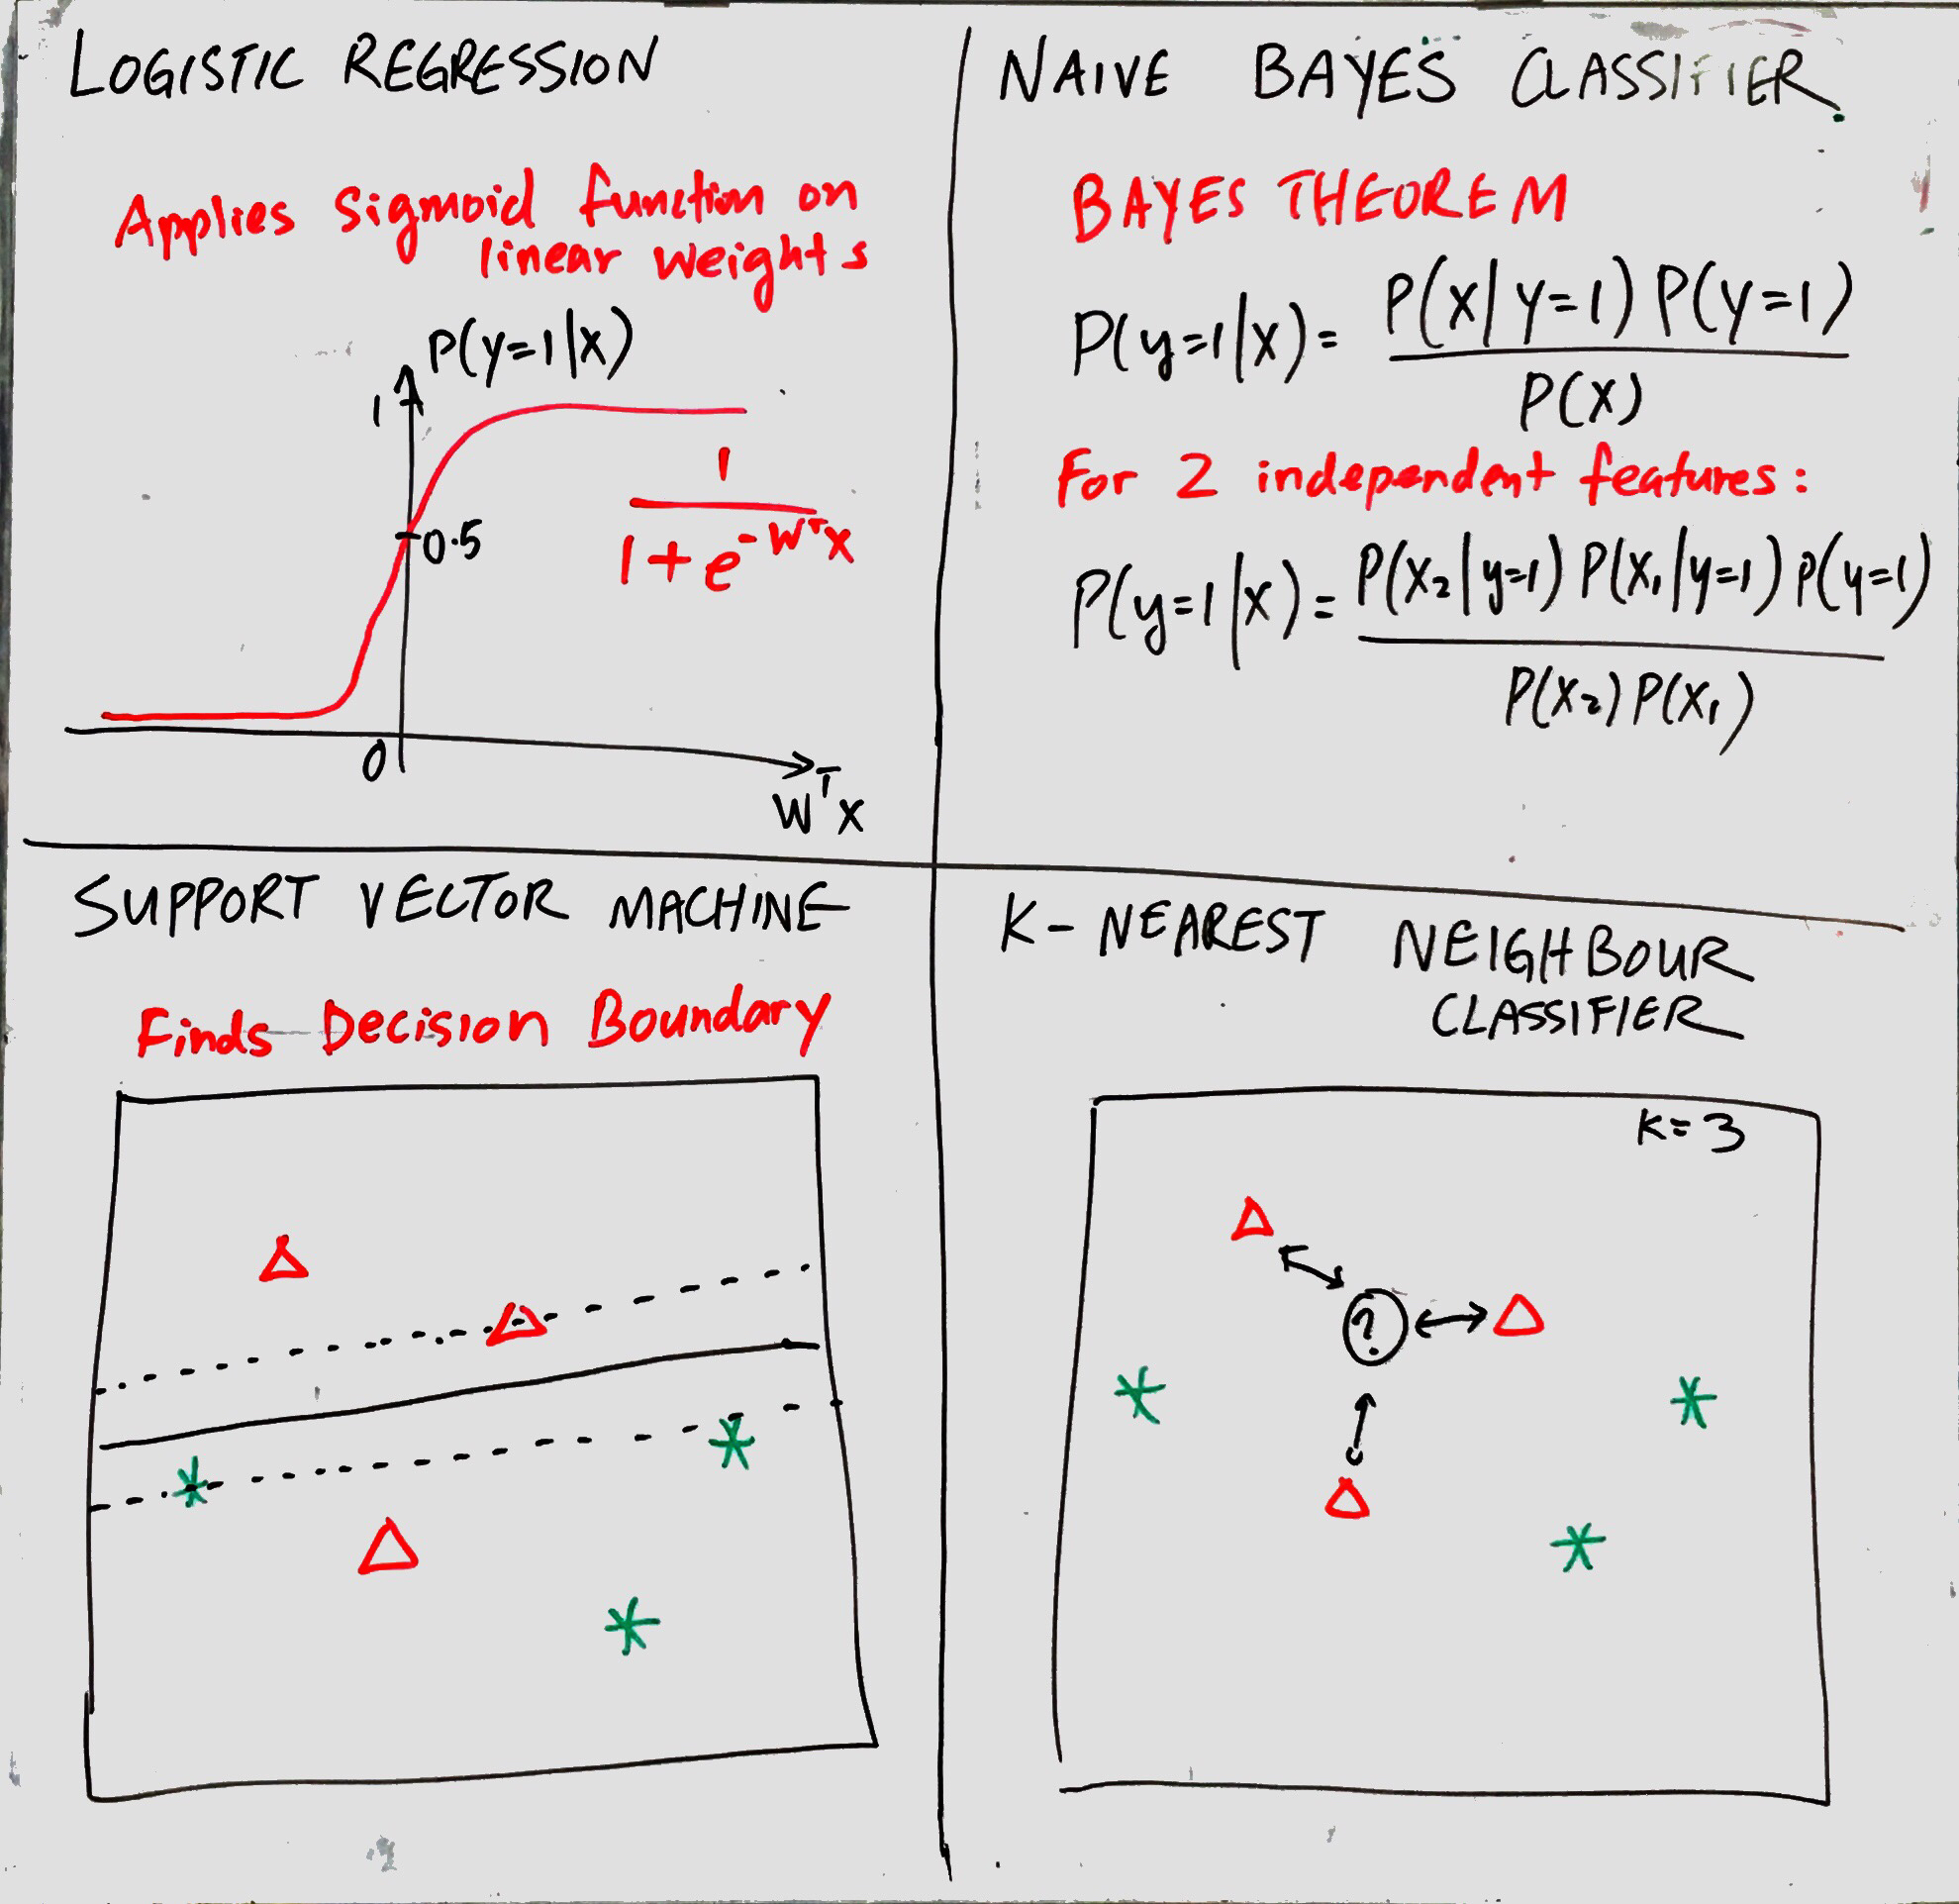 LOGISTIC REGRESSION
Applies sigmoid function on
linear weights
P(y=1|X)
1
0.5
0
1
1+e^-WᵀX
WᵀX
NAIVE BAYES CLASSIFIER
BAYES THEOREM
P(y=1|X)= P(X|y=1) P(y=1)
P(X)
For 2 independent features:
P(y=1|X)= P(X₂|y=1) P(X₁|y=1) P(y=1)
P(X₂) P(X₁)
SUPPORT VECTOR MACHINE
Finds Decision Boundary
K-NEAREST NEIGHBOUR
CLASSIFIER
K=3
?